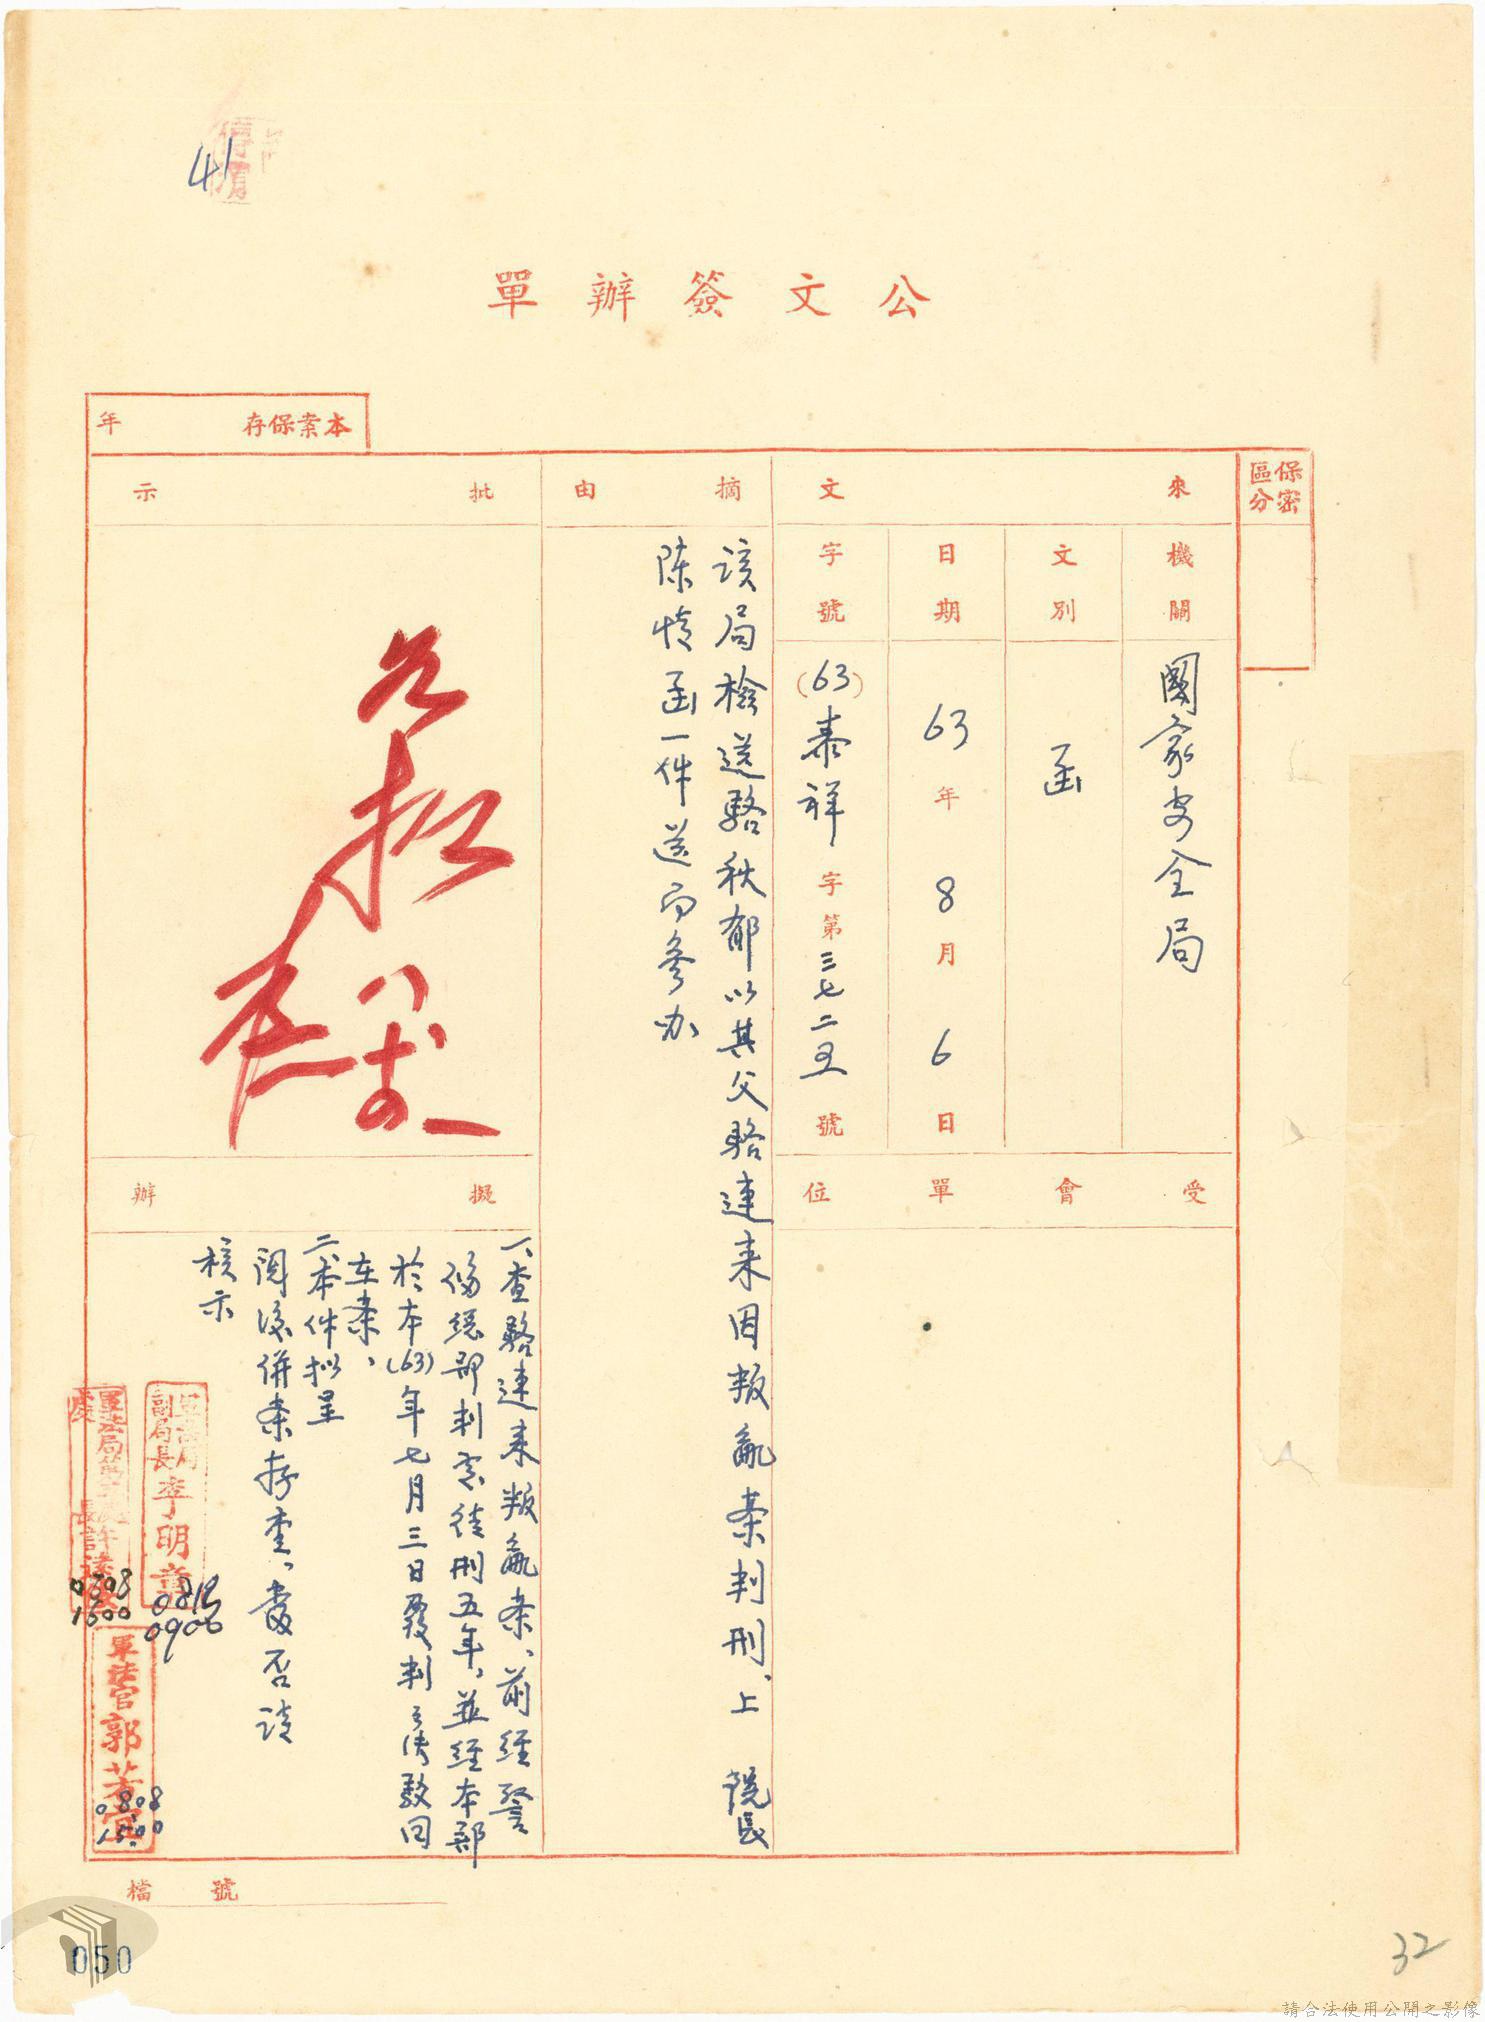 41
公文簽辦單
本案保存 年
保密區分
來文
機關
國家安全局
文別
函
日期
63年8月6日
字號
(63)泰祥字第三七二五號
受會單位
摘由
該局檢送駱秋郁以其父駱連来因叛亂案判刑、上 院長
陳情函一件送向參办
批示
擬辦
一、查駱連来叛亂案、前經警
備總部判處徒刑五年,並經本部
於本(63)年七月三日覆判
在案、
二、本件拟呈
閱後併案存查、當否請
核示
軍法局副局長李明章
0812
0900
0808
1600
軍法官郭
0808
1500
檔號
050
32
請合法使用公開之影像